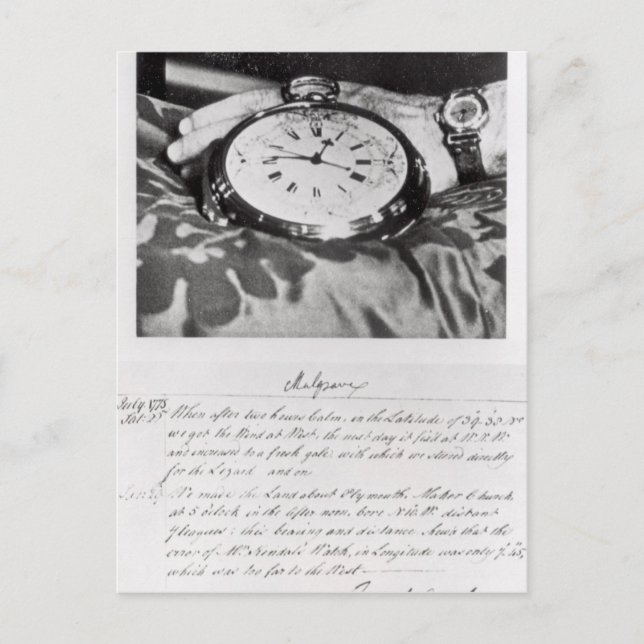 Mulgrave
July 1775
When after two hours Calm, in the Latitude of
we got the Wind at West, the next day it at W.S.W.
and increased to a fresh gale with which we steered directly
for the Lezard and on
We made the Land about Plymouth Maker Church,
at 5 o'Clock in the after noon, bore N10.W. distant
7 leagues; this bearing and distance shew'd that the
error of Mr. Kendal's Watch, in Longitude was only 7'.45",
which was too far to the West